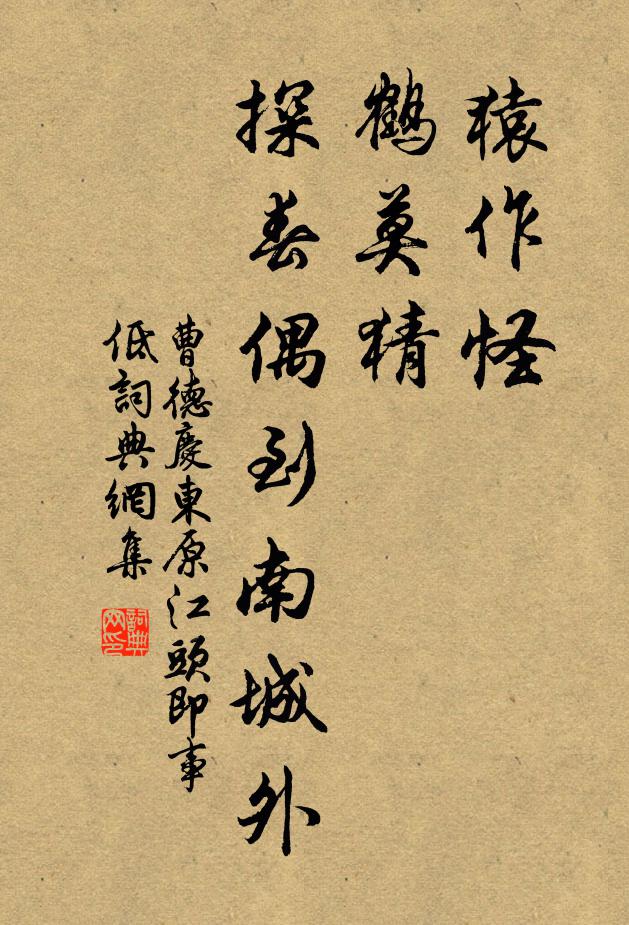 猿作怪
鶴莫猜
探春偶到南城外
曹德慶東原江頭即事
低詞典網集
詞典
网印